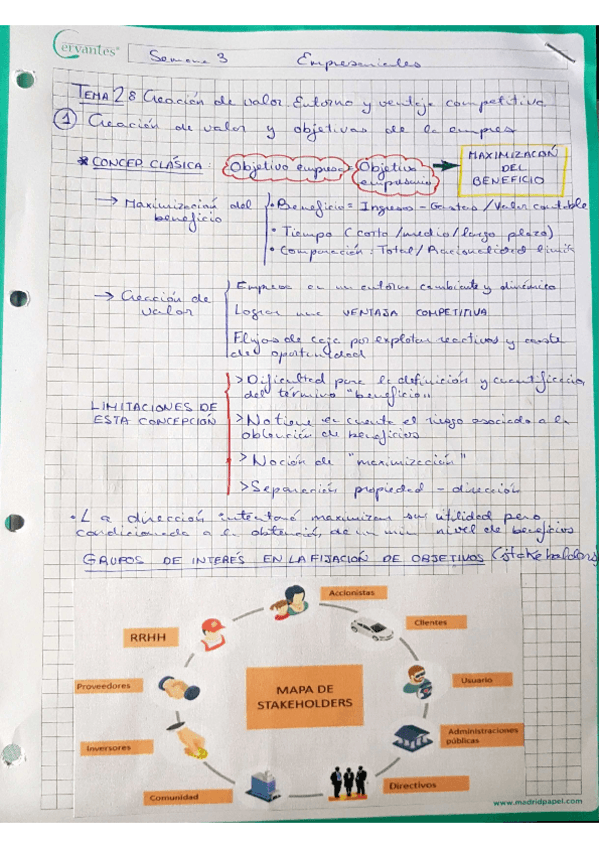 Cervantes®
Semana 3 Empresariales
TEMA 2: Creación de valor. Entorno y ventaja competitiva
① Creación de valor y objetivos de la empres
* CONCEP. CLÁSICA: Objetivo empresa Objetivo empresario → MAXIMIZACIÓN DEL BENEFICIO
→ Maximización del beneficio
• Beneficio = Ingresos - Gastos / Valor contable
• Tiempo (corto/medio/largo plazo)
• Comparación: Total/Racionalidad limit
→ Creación de valor
Empresa en un entorno cambiante y dinámico
Lograr una VENTAJA COMPETITIVA
Flujos de caja por explotar reactivos y coste
de oportunidad
LIMITACIONES DE
ESTA CONCEPCIÓN
> Dificultad para la definición y cuantificación
del término "beneficio"
> No tiene en cuenta el riesgo asociado a la
obtención de beneficios
> Noción de "maximización"
> Separación propiedad - dirección
• La dirección intentará maximizar su utilidad pero
condicionada a la obtención de un min nivel de beneficios
GRUPOS DE INTERÉS EN LA FIJACIÓN DE OBJETIVOS (stakeholders
Accionistas
Clientes
RRHH
Usuario
Proveedores
MAPA DE
STAKEHOLDERS
Administraciones
públicas
Inversores
Directivos
Comunidad
www.madridpapel.com